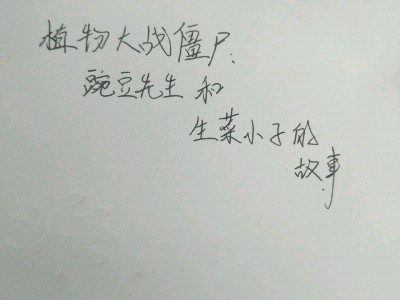 植物大战僵尸:
豌豆先生和
生菜小子的
故事